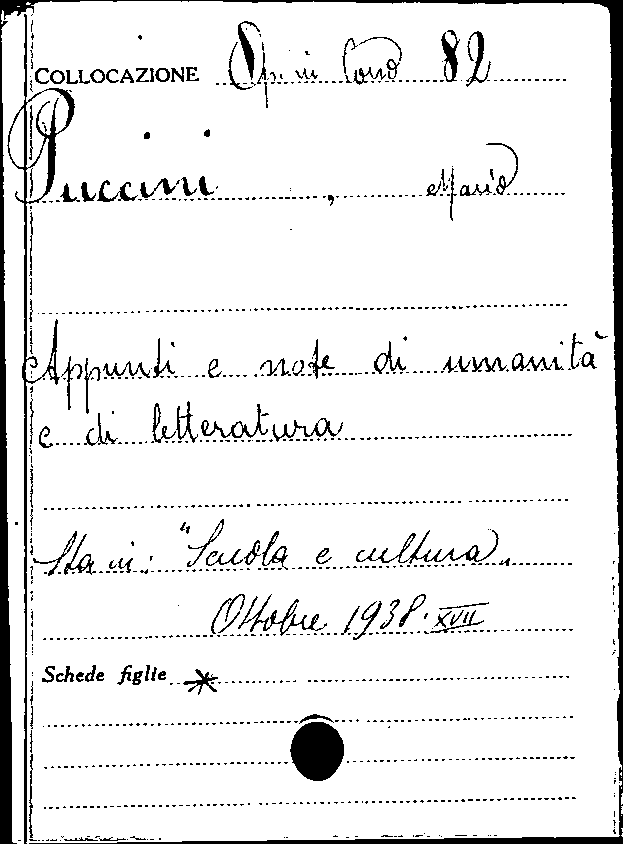 COLLOCAZIONE Op. in Cons 82
Puccini, Mario
Appunti e note di umanità
e di letteratura
Sta in: "Scuola e cultura„
Ottobre 1938·XVII
Schede figlie *